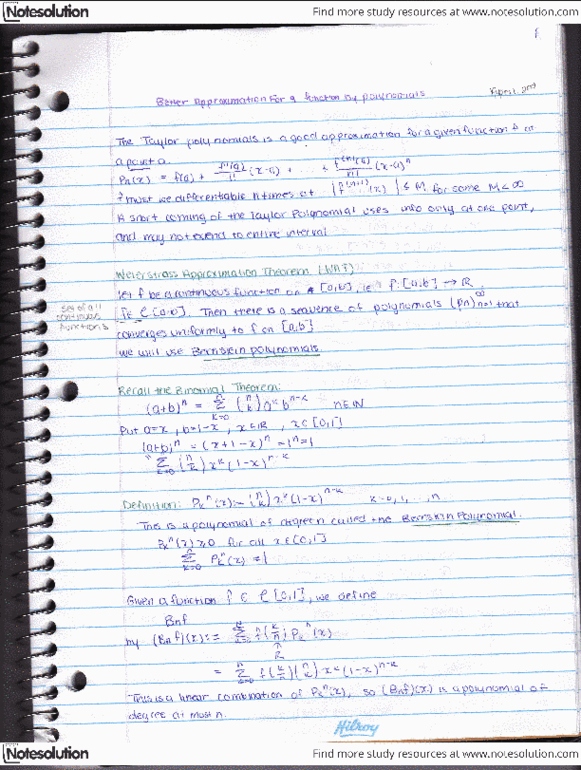 Notesolution
Find more study resources at www.notesolution.com
1
Better Approximation for a function by polynomials
April 2nd
The Taylor polynomials is a good approximation for a given function f at
a point a.
Pn(x) = f(a) + f'(a)/1! (x-a) + . . + f^(n)(a)/n! (x-a)^n
f must be differentiable n times at |f^(n+1)(x)| ≤ M for some M<∞
A short coming of the Taylor Polynomial uses info only at one point,
and may not extend to entire interval
Weierstrass Approximation Theorem (WAT)
Let f be a continuous function on [a,b], ie f: [a,b] → R
set of all
continuous
functions
f∈ C[a,b]. Then there is a sequence of polynomials (pn)_{n=1}^∞ that
converges uniformly to f on [a,b]
we will use Bernstein polynomials
Recall the Binomial Theorem:
(a+b)^n = Σ_{k=0}^n (n k) a^k b^{n-k} n∈N
Put a=x, b=1-x, x∈R, x∈[0,1]
(a+b)^n = (x+1-x)^n = 1^n = 1
Σ_{k=0}^n (n k) x^k (1-x)^{n-k}
Definition: P_k^n(x) := (n k) x^k (1-x)^{n-k} k=0,1,...,n
This is a polynomial of degree n called the Bernstein Polynomial.
P_k^n(x) ≥ 0 for all x∈[0,1]
Σ_{k=0}^n P_k^n(x) = 1
Given a function f ∈ C[0,1], we define
Bnf
by (Bnf)(x) := Σ_{k=0}^n f(k/n) P_k^n(x)
R
= Σ_{k=0}^n f(k/n) (n k) x^k (1-x)^{n-k}
This is a linear combination of P_k^n(x), so (Bnf)(x) is a polynomial of
degree at most n.
Hilroy
Notesolution
Find more study resources at www.notesolution.com